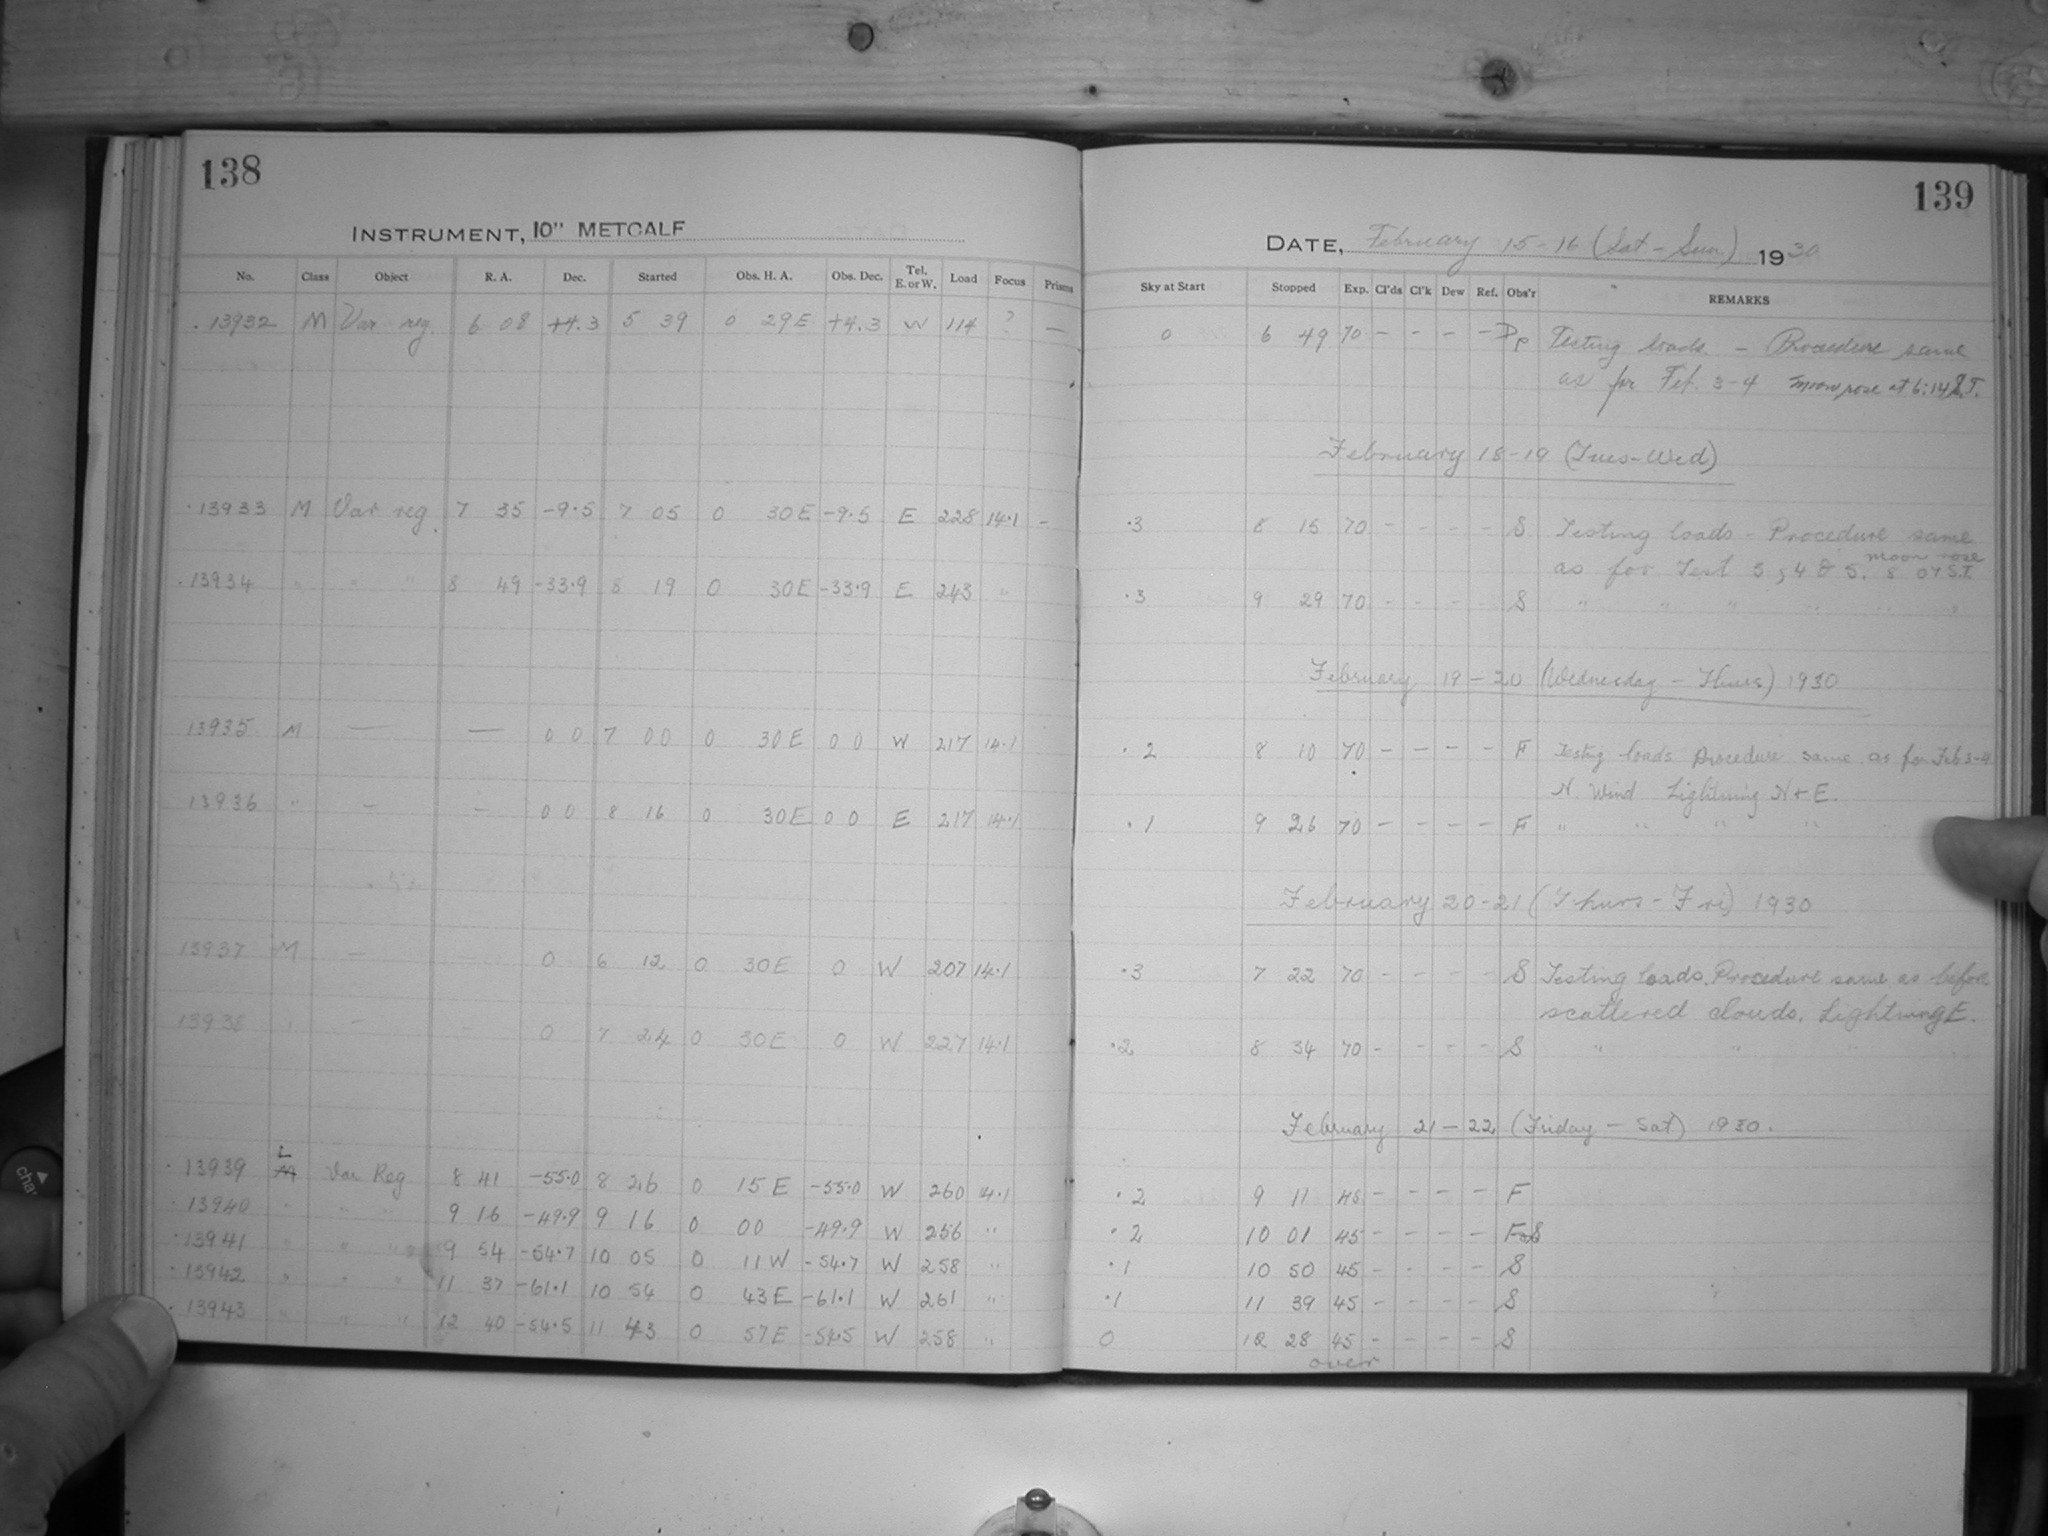 138
INSTRUMENT, 10" METCALF
No. Class Object R. A. Dec. Started Obs. H. A. Obs. Dec. Tel. E. or W. Load Focus Prisms
13932 M Var reg. 6 08 +4.3 5 39 0 29E +4.3 W 114 ? —
13933 M Var reg. 7 35 -9.5 7 05 0 30E -9.5 E 228 14.1 -
13934 " " " 8 49 -33.9 8 19 0 30E -33.9 E 243 "
13935 M — — 0 0 7 00 0 30E 0 0 W 217 14.1
13936 " - - 0 0 8 16 0 30E 0 0 E 217 14.1
13937 M — 0 6 12 0 30E 0 W 207 14.1
13938 " — 0 7 24 0 30E 0 W 227 14.1
13939 L M Var Reg 8 41 -55.0 8 26 0 15E -55.0 W 260 14.1
13940 " " " 9 16 -49.9 9 16 0 00 -49.9 W 256 "
13941 " " " 9 54 -54.7 10 05 0 11W -54.7 W 258 "
13942 " " " 11 37 -61.1 10 54 0 43E -61.1 W 261 "
13943 " " " 12 40 -54.5 11 43 0 57E -54.5 W 258 "
139
DATE, February 15-16 (Sat-Sun) 1930
Sky at Start Stopped Exp. Cl'ds Cl'k Dew Ref. Obs'r REMARKS
0 6 49 70 - - - - Dp Testing loads. - Procedure same
as for Feb. 3-4 Moon rose at 6:14 S.T.
February 18-19 (Tues-Wed)
.3 8 15 70 - - - - S Testing loads - Procedure same
as for Test 3, 4 & 5. moon rose 8 07 S.T.
.3 9 29 70 - - - - S " " " " " "
February 19-20 (Wednesday - Thurs) 1930
.2 8 10 70 - - - - F Testing loads Procedure same as for Feb 3-4
N. Wind Lightning N + E.
.1 9 26 70 - - - - F " " " "
February 20-21 (Thurs-Fri) 1930
.3 7 22 70 - - - - S Testing loads. Procedure same as before
scattered clouds. Lightning E.
.2 8 34 70 - - - - S " " "
February 21-22 (Friday - Sat) 1930.
.2 9 11 45 - - - - F
.2 10 01 45 - - - - F S
.1 10 50 45 - - - - S
.1 11 39 45 - - - - S
0 12 28 45 - - - - S
over